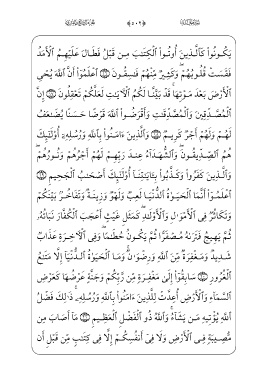 يَكُونُوا۟ كَٱلَّذِينَ أُوتُوا۟ ٱلْكِتَٰبَ مِن قَبْلُ فَطَالَ عَلَيْهِمُ ٱلْأَمَدُ
فَقَسَتْ قُلُوبُهُمْ وَكَثِيرٌ مِّنْهُمْ فَٰسِقُونَ ٱعْلَمُوٓا۟ أَنَّ ٱللَّهَ يُحْىِ
ٱلْأَرْضَ بَعْدَ مَوْتِهَا قَدْ بَيَّنَّا لَكُمُ ٱلْءَايَٰتِ لَعَلَّكُمْ تَعْقِلُونَ إِنَّ
ٱلْمُصَّدِّقِينَ وَٱلْمُصَّدِّقَٰتِ وَأَقْرَضُوا۟ ٱللَّهَ قَرْضًا حَسَنًا يُضَٰعَفُ
لَهُمْ وَلَهُمْ أَجْرٌ كَرِيمٌ وَٱلَّذِينَ ءَامَنُوا۟ بِٱللَّهِ وَرُسُلِهِۦٓ أُو۟لَٰٓئِكَ
هُمُ ٱلصِّدِّيقُونَ وَٱلشُّهَدَآءُ عِندَ رَبِّهِمْ لَهُمْ أَجْرُهُمْ وَنُورُهُمْ
وَٱلَّذِينَ كَفَرُوا۟ وَكَذَّبُوا۟ بِـَٔايَٰتِنَآ أُو۟لَٰٓئِكَ أَصْحَٰبُ ٱلْجَحِيمِ
ٱعْلَمُوٓا۟ أَنَّمَا ٱلْحَيَوٰةُ ٱلدُّنْيَا لَعِبٌ وَلَهْوٌ وَزِينَةٌ وَتَفَاخُرٌۢ بَيْنَكُمْ
وَتَكَاثُرٌ فِى ٱلْأَمْوَٰلِ وَٱلْأَوْلَٰدِ كَمَثَلِ غَيْثٍ أَعْجَبَ ٱلْكُفَّارَ نَبَاتُهُۥ
ثُمَّ يَهِيجُ فَتَرَىٰهُ مُصْفَرًّا ثُمَّ يَكُونُ حُطَٰمًا وَفِى ٱلْءَاخِرَةِ عَذَابٌ
شَدِيدٌ وَمَغْفِرَةٌ مِّنَ ٱللَّهِ وَرِضْوَٰنٌ وَمَا ٱلْحَيَوٰةُ ٱلدُّنْيَآ إِلَّا مَتَٰعُ
ٱلْغُرُورِ سَابِقُوٓا۟ إِلَىٰ مَغْفِرَةٍ مِّن رَّبِّكُمْ وَجَنَّةٍ عَرْضُهَا كَعَرْضِ
ٱلسَّمَآءِ وَٱلْأَرْضِ أُعِدَّتْ لِلَّذِينَ ءَامَنُوا۟ بِٱللَّهِ وَرُسُلِهِۦ ذَٰلِكَ فَضْلُ
ٱللَّهِ يُؤْتِيهِ مَن يَشَآءُ وَٱللَّهُ ذُو ٱلْفَضْلِ ٱلْعَظِيمِ مَآ أَصَابَ مِن
مُّصِيبَةٍ فِى ٱلْأَرْضِ وَلَا فِىٓ أَنفُسِكُمْ إِلَّا فِى كِتَٰبٍ مِّن قَبْلِ أَن